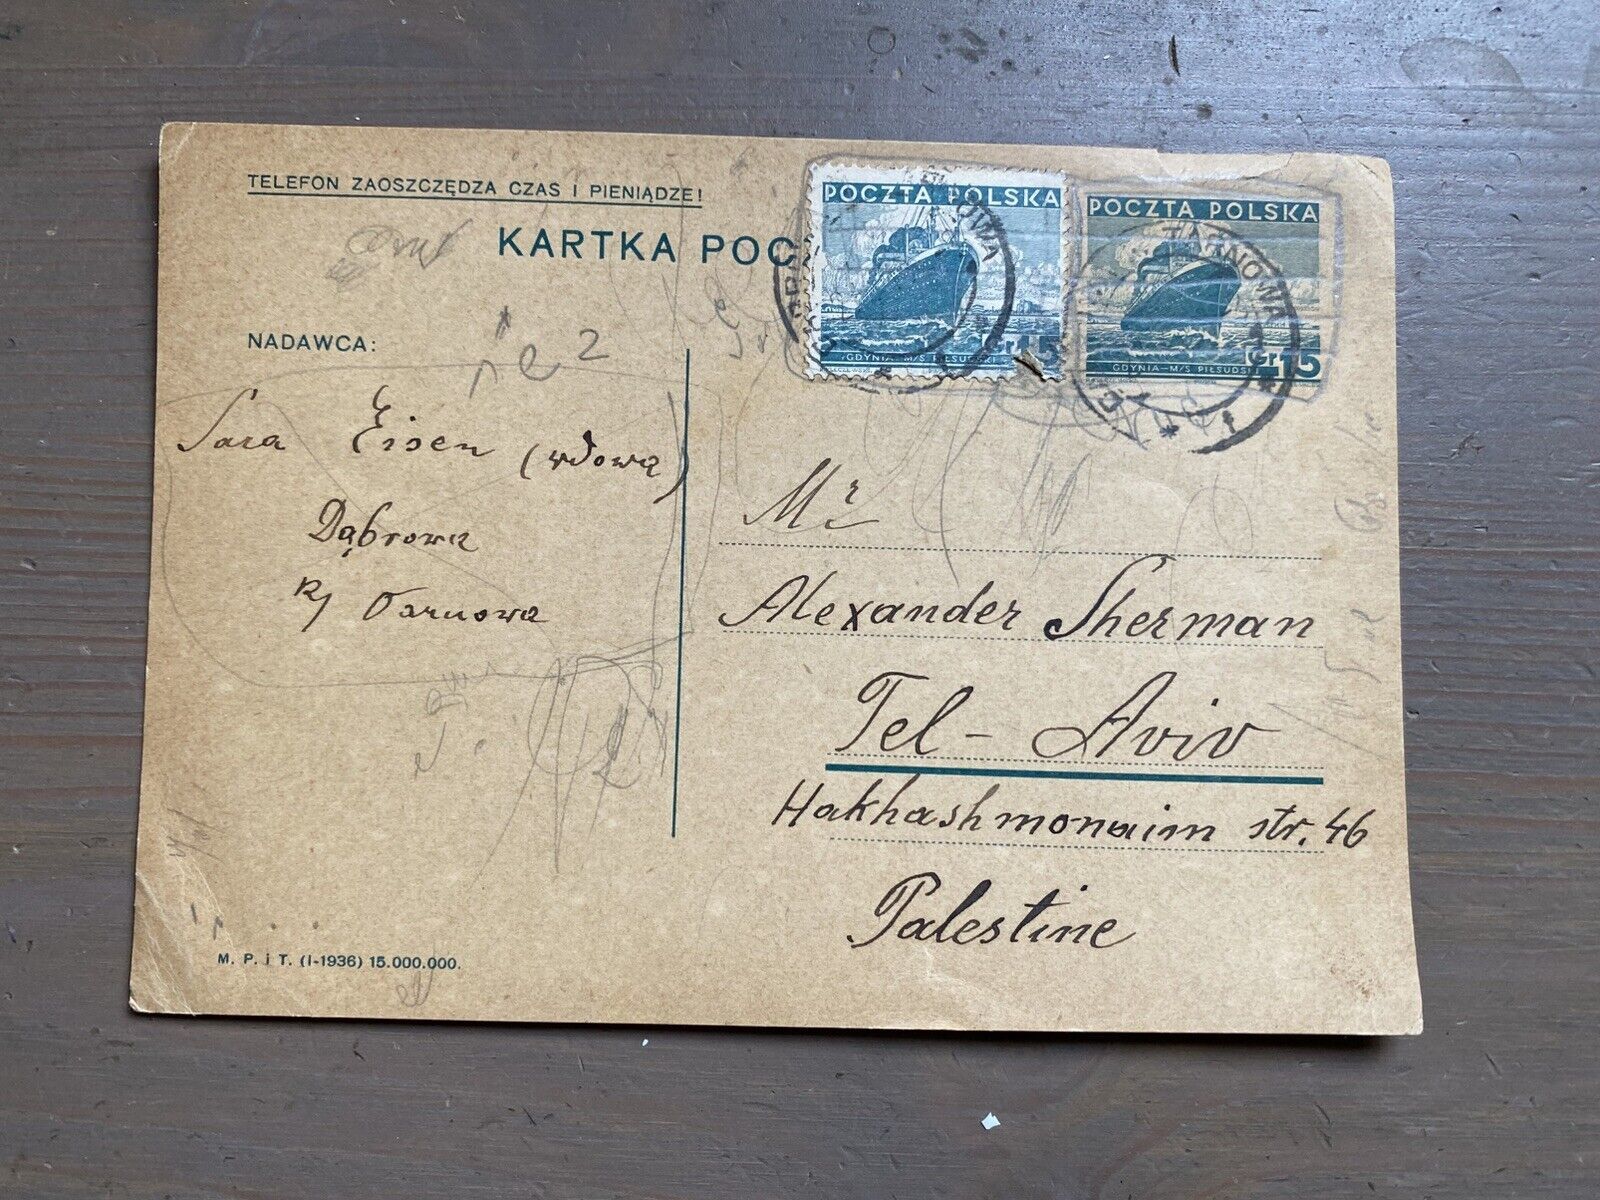 TELEFON ZAOSZCZĘDZA CZAS I PIENIĄDZE!
KARTKA POC
POCZTA POLSKA
GDYNIA—M/S PIŁSUDSKI
Gr 15
POCZTA POLSKA
Gr 15
GDYNIA—M/S PIŁSUDSKI
TARNOWA
NADAWCA:
Sara Eisen (wdowa)
Dąbrowa
k/ Tarnowa
Mr
Alexander Sherman
Tel-Aviv
Hakhashmonaim str. 46
Palestine
M. P. i T. (I-1936) 15.000.000.